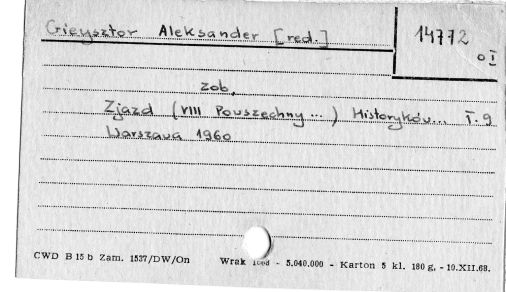 Gieysztor Aleksander [red.]
14772
o I
zob.
Zjazd (VIII Powszechny...) Historyków... T. 9
Warszawa 1960
CWD B 15 b Zam. 1537/DW/On Wrak - 5.040.000 - Karton 5 kl. 180 g, - 10.XII.68.